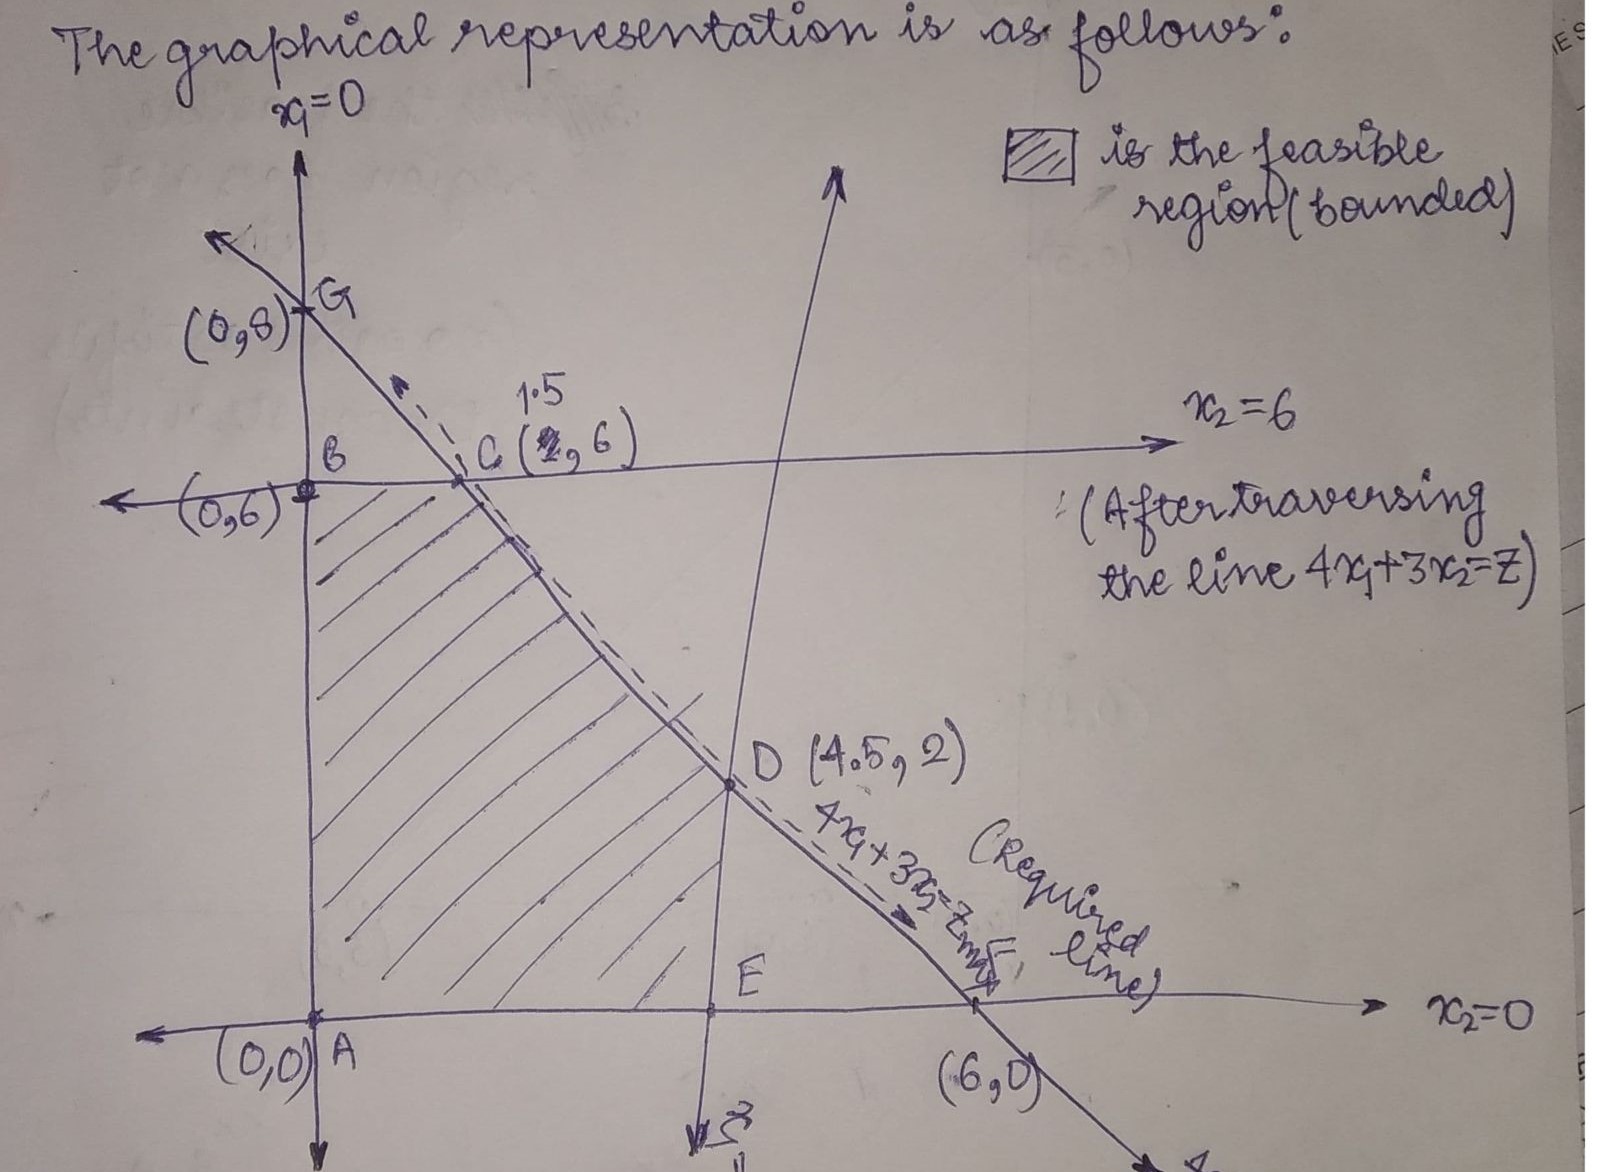 The graphical representation is as follows:
x₁=0
is the feasible
region (bounded)
G
(0,8)
1.5
B
C (, 6)
x₂=6
(0,6)
(After traversing
the line 4x₁+3x₂=Z)
D (4.5, 2)
4x₁+3x₂=Zmax
(Required
line)
E
x₂=0
(0,0)
A
(6,0)